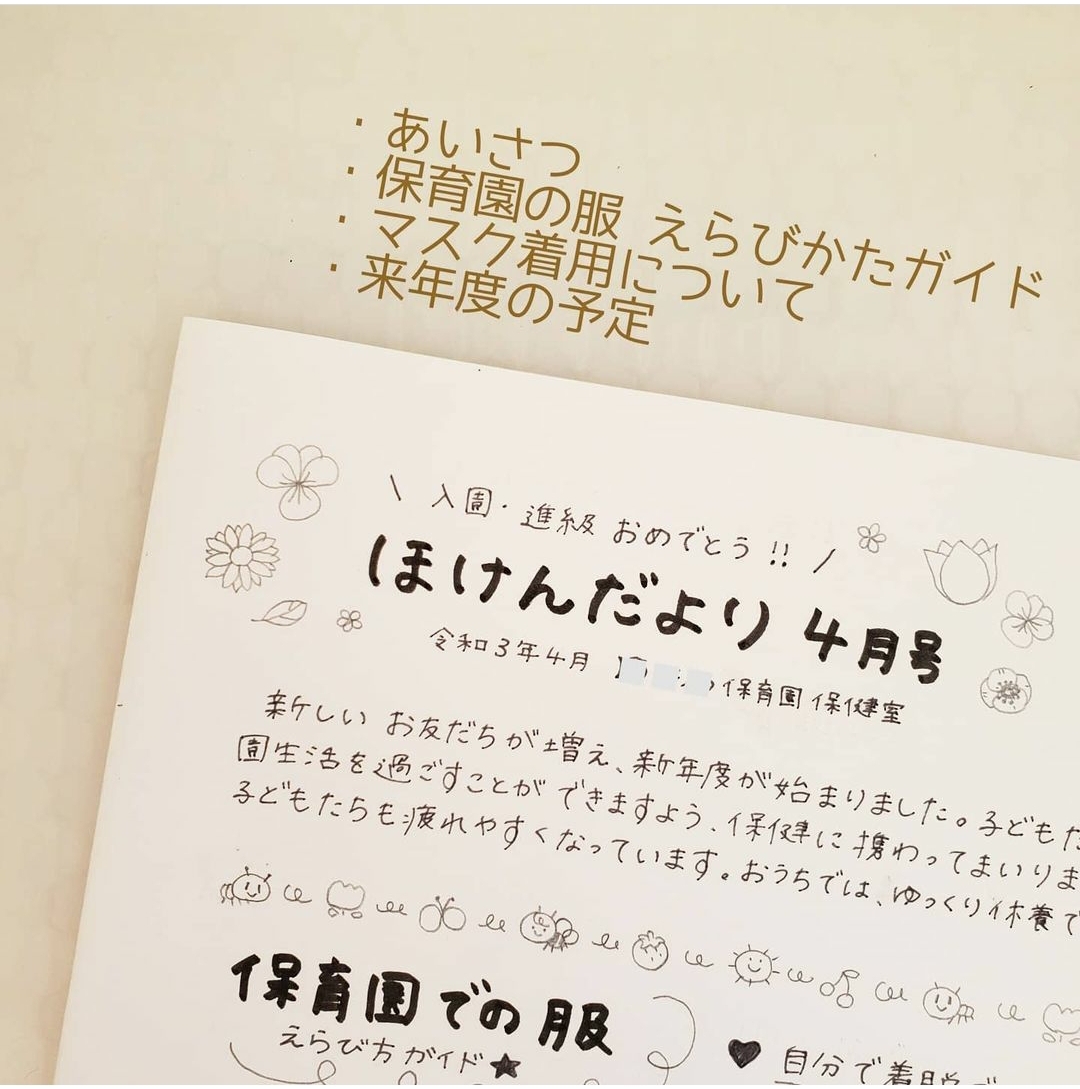 ・あいさつ
・保育園の服 えらびかたガイド
・マスク着用について
・来年度の予定
\ 入園・進級 おめでとう!! /
ほけんだより 4月号
令和3年4月 保育園 保健室
新しい お友だちが増え、新年度が始まりました。子どもた
園生活を過ごすことが できますよう、保健に携わってまいりま
子どもたちも疲れやすくなっています。おうちでは、ゆっくり休養で
保育園での服
えらび方ガイド★
♥ 自分で着脱